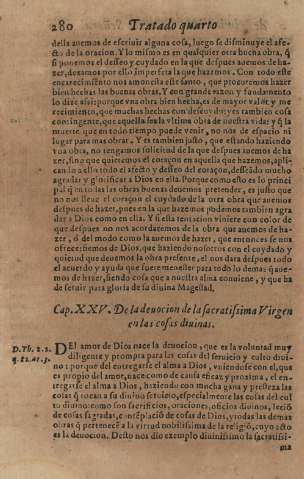 280 Tratado quarto
della auemos de escriuir alguna cosa, luego se disminuye el afec-
to de la oracion. Y lo mismo es en qualquier otra buena obra, q̃
si ponemos el desseo y cuydado en lo que despues auemos de ha-
zer, dexamos por esso imperfeta la que hazemos. Con todo este
encarecimiento nos amonesta este santo, que procuremos hazer
bien hechas las buenas obras. Y con grande razon y fundamento
lo dize assi: porque vna obra bien hecha, es de mayor valor y me
recimiento, que muchas hechas con defecto: y es tambien cosa
contingente, que aquella sea la vltima obra de nuestra vida: y q̃ la
muerte que en todo tiempo puede venir, no nos dè espacio ni
lugar para mas obrar. Y es tambien justo, que estando haziendo
vna obra, no tengamos solicitud de la que despues auemos de ha
zer, sino que quietemos el coraçon en aquella que hazemos, apli-
cando a ella todo el afecto y desseo del coraçon, desseādo mucho
agradar y glorificar a Dios en ella. Porque como esto es lo princi
pal q̃ en todas las obras buenas deuemos pretender, es justo que
no nos lleue el coraçon el cuydado de la otra obra que auemos
despues de hazer, pues en la que hazemos podemos tambien agra
dar a Dios como en ella. Y si esta tentacion viniere con color de
que despues no nos acordaremos de la obra que auemos de ha-
zer, ò del modo como la auemos de hazer, que entonces se nos
ofrece: fiemos de Dios, que haziendo nosotros con el cuydado y
quietud que deuemos la obra presente, el nos dara despues todo
el acuerdo y ayuda que fuere menester para todo lo demas q̃ aue-
mos de hazer, siendo cosa que a nuestra alma conuiene, y que ha
de seruir para gloria de su diuina Magestad.
Cap. XXV. De la deuocion de la sacratissima Virgen
en las cosas diuinas.
D. Th. 2. 2.
q. 82. ar. 1.
DEl amor de Dios nace la deuocion, que es la voluntad muy
diligente y prompta para las cosas del seruicio y culto diui-
no: porque del entregarse el alma a Dios, vniendose con el, que
es propio del amor, nace como de causa eficaz y proxima, el en-
tregarse el alma a Dios, haziendo con mucha gana y presteza las
cosas q̃ tocan a su diuino seruicio, especialmente las cosas del cul
to diuino: como son sacrificios, oraciones, oficios diuinos, leciō
de cosas sagradas, cōtēplaciō de cosas de Dios, y todas las demas
obras q̃ pertenecē a la virtud nobilissima de la religiō, cuyo acto
es la deuocion. Desto nos dio exemplo diuinissimo la sacratissi-
ma